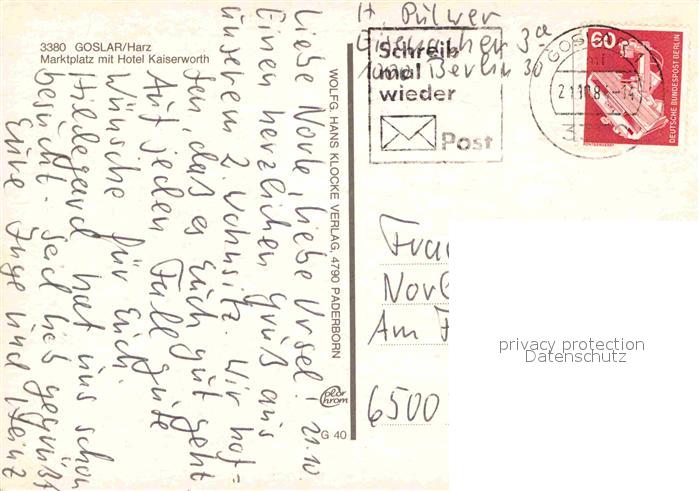 3380 GOSLAR/Harz
Marktplatz mit Hotel Kaiserworth
Liebe Nore, liebe Ursel! 21.10.
Einen herzlichen Gruß aus
unserem 2. Wohnsitz. Wir hof=
fen, daß es Euch gut geht
Auf jeden Fall gute
Wünsche für Euch.
Hildegard hat uns schon
besucht. Seid lieb gegrüßt
Eure Inge und Heinz
WOLFG. HANS KLOCKE VERLAG, 4790 PADERBORN
color
chrom
G 40
H. Pülwer
Eisenacher 3a
1000 Berlin 30
Schreib
mal
wieder
Post
GOSLAR
60
DEUTSCHE BUNDESPOST BERLIN
Frau
Am
6500
privacy protection
Datenschutz